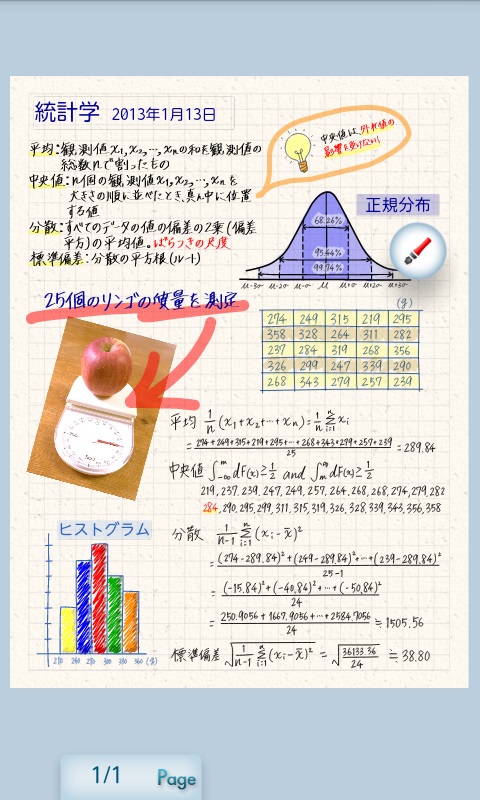 統計学 2013年1月13日
平均:観測値x₁,x₂,…,xₙの和を観測値の
総数nで割ったもの
中央値:n個の観測値x₁,x₂,…,xₙを
大きさの順に並べたとき、真ん中に位置
する値
分散:すべてのデータの値の偏差の2乗(偏差
平方)の平均値。ばらつきの尺度
標準偏差:分散の平方根(ルート)
中央値は、外れ値の
影響を受けない!
正規分布
68.26%
95.44%
99.74%
μ-3σ μ-2σ μ-σ μ μ+σ μ+2σ μ+3σ
25個のリンゴの質量を測定
(g)
274 249 315 219 295
358 328 264 311 282
237 284 319 268 356
326 299 247 339 290
268 343 279 257 239
平均 1/n (x₁+x₂+…+xₙ)=1/n Σⁿᵢ₌₁ xᵢ
=(274+249+315+219+295+…+268+343+279+257+239)/25=289.84
中央値 ∫₋∞ᵐ dF(x)≥1/2 and ∫ₘ∞ dF(x)≥1/2
219,237,239,247,249,257,264,268,268,274,279,282
284,290,295,299,311,315,319,326,328,339,343,356,358
ヒストグラム
分散 1/(n-1) Σⁿᵢ₌₁ (xᵢ-x̄)²
=((274-289.84)²+(249-289.84)²+…+(239-289.84)²)/(25-1)
=((-15.84)²+(-40.84)²+…+(-50.84)²)/24
=(250.9056+1667.9056+…+2584.7056)/24≒1505.56
標準偏差 √(1/(n-1) Σⁿᵢ₌₁ (xᵢ-x̄)²) = √(36133.36/24) ≒38.80
(g)
1/1 Page